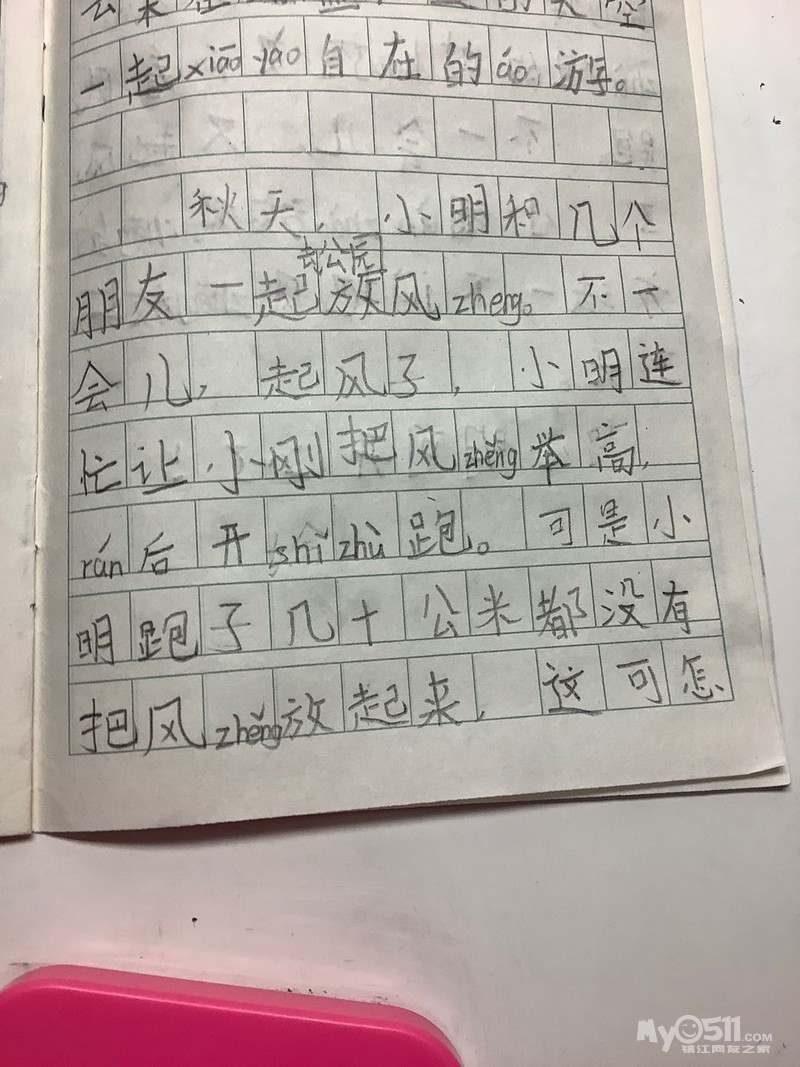 一起xiāo yáo自在的áo游。
秋天，小明和几个
去公园
朋友一起放风zheng。不一
会儿，起风了，小明连
忙让小刚把风zhēng举高，
rán后开shǐ zhù跑。可是小
明跑了几十公米都没有
把风zhēng放起来，这可怎
My0511.COM
镇江网友之家